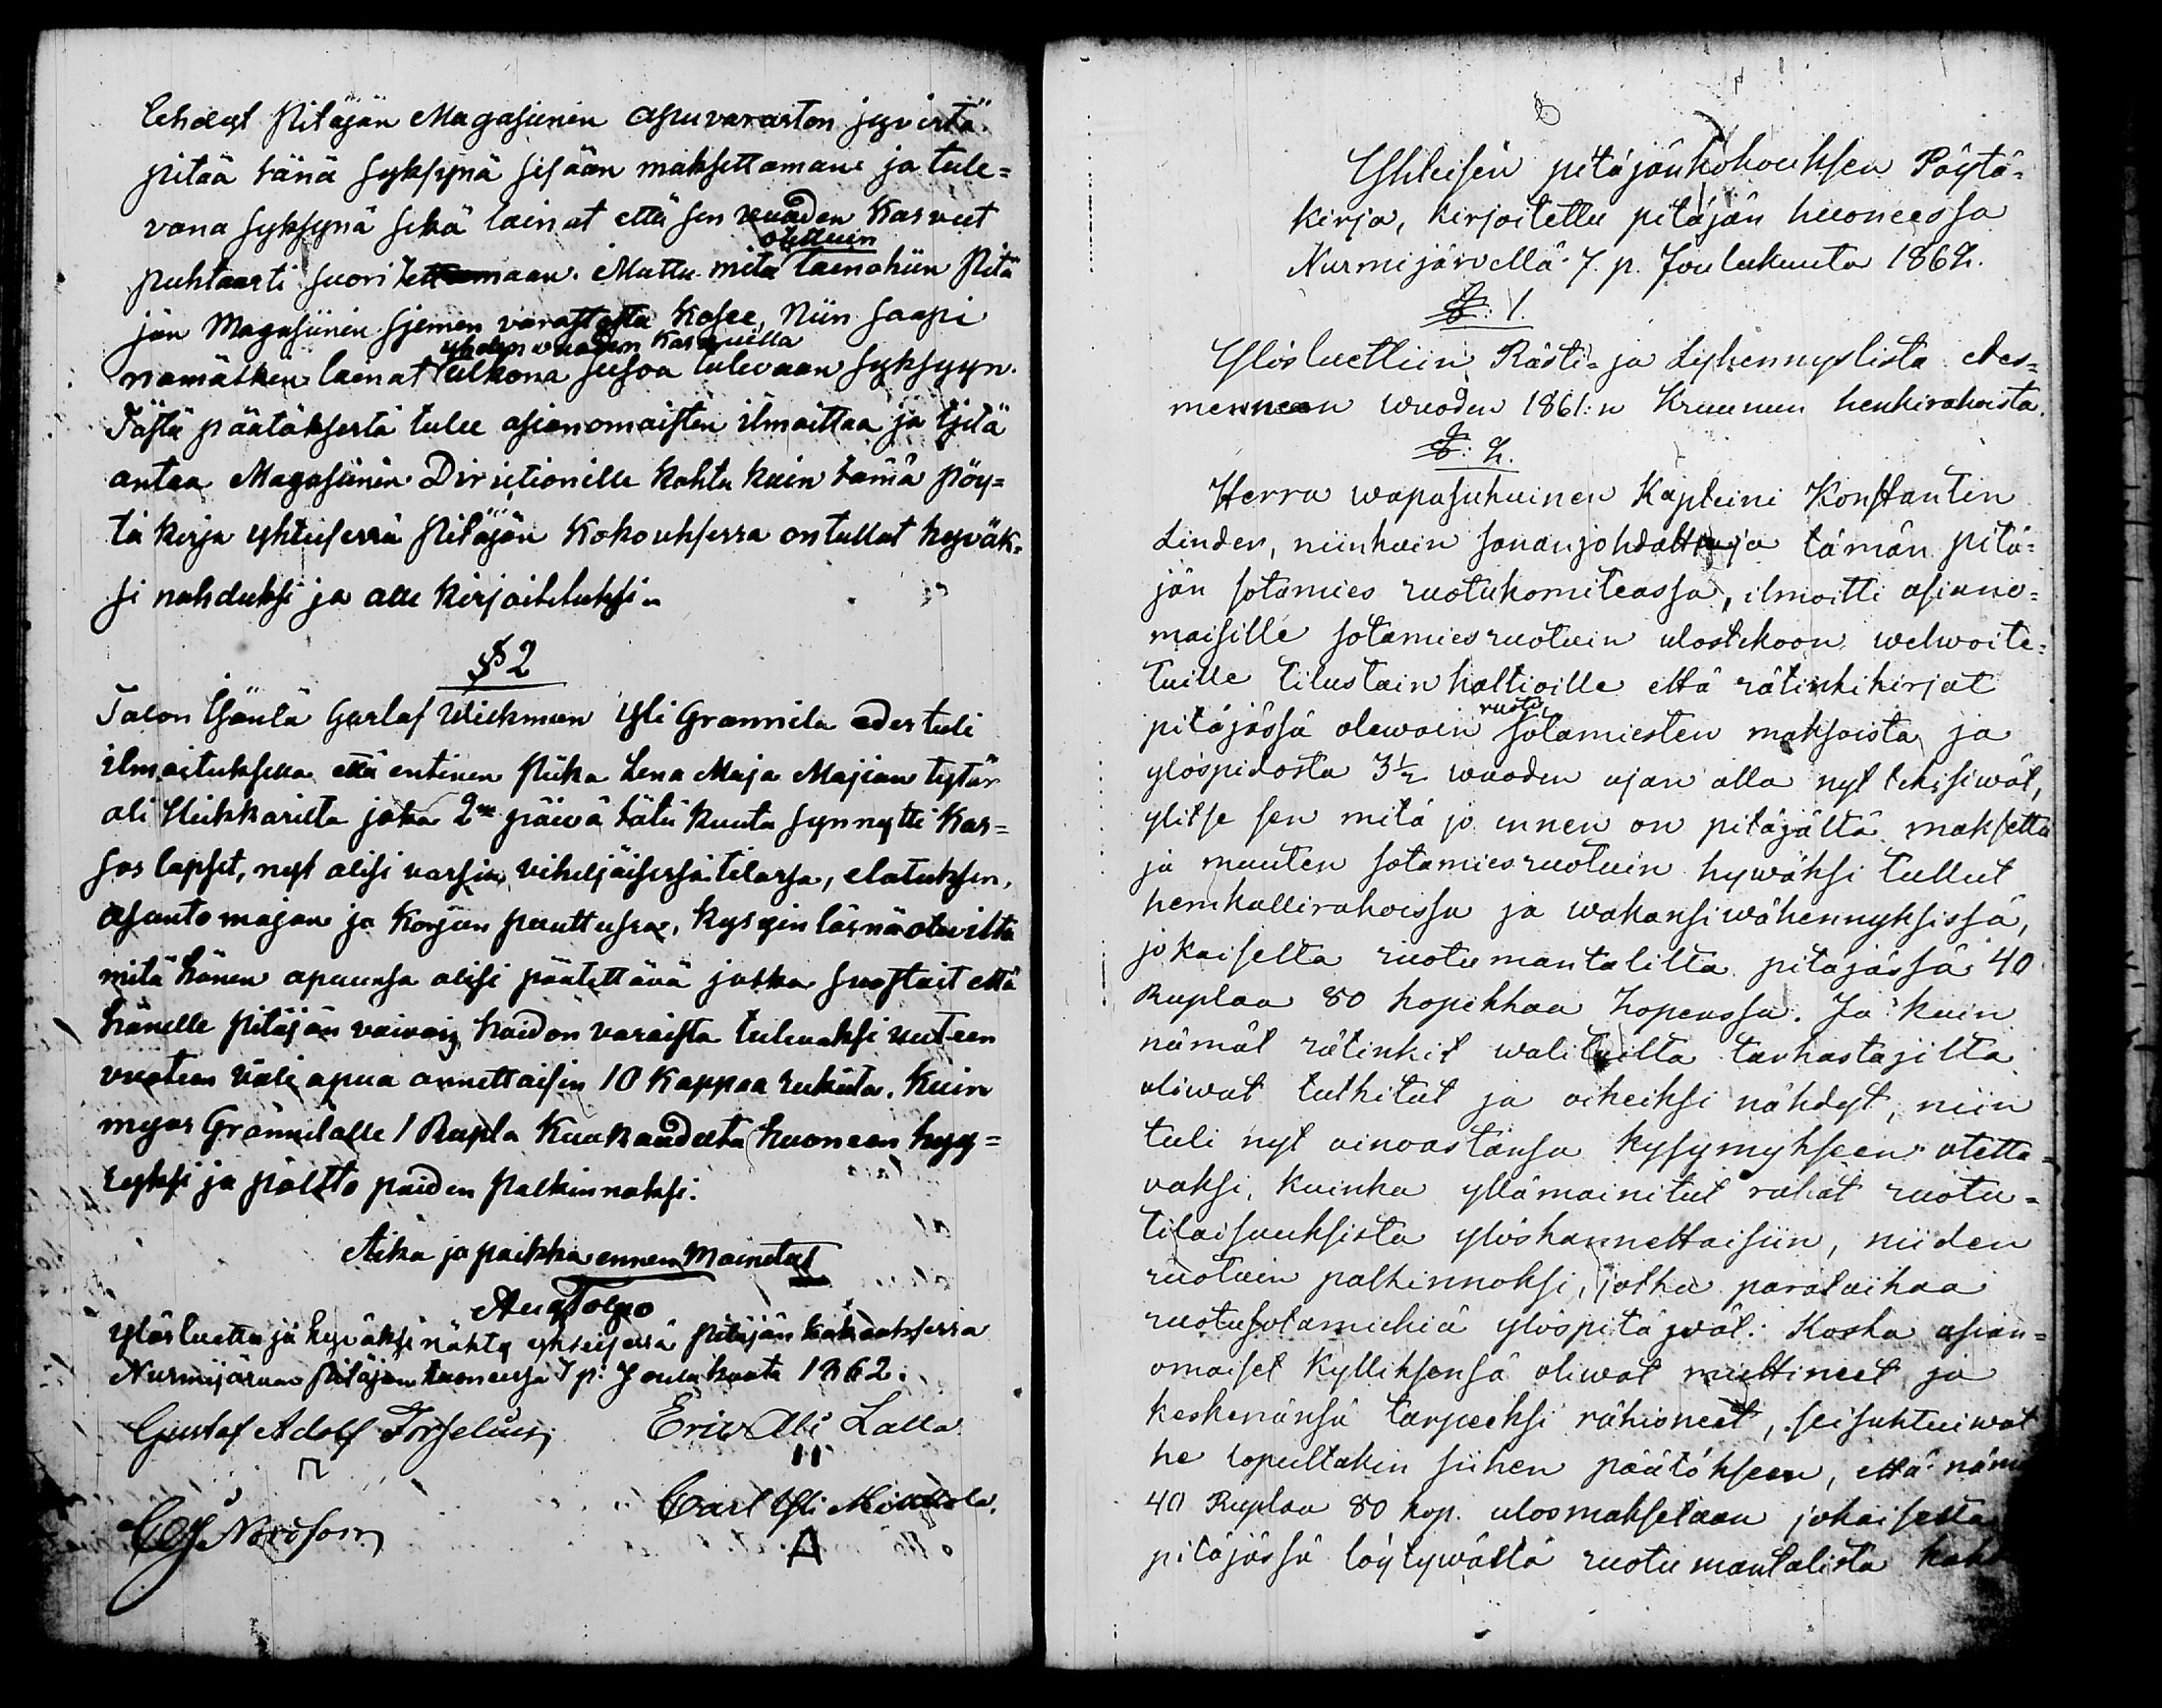 lehdyt Pitäjän Magasiinin apuvaraston jyvistä
pitää tänä syksynä sisään maksettaman ja tule=
vana syksynä sekä lainat että sen vuoden Kasvut
puhtaasti suoritettamaan. Mutta mitä otettuin lainohin Pitä
jän Magasiinin sjemen varastosta Kosee, Niin saapi
nämätken lainat yhden vuoden Kasvuilla ulkona seisoa tulevaan syksyyn.
Tästä päätöksestä tulee asianomaisten ilmoittaa ja tjetä
antaa Magasiinin Dirictionille kohta kuin tämä pöy=
tä kirja yhteisessä Pitäjän Kokouksessa on tullut hyväk=
si nähduksi ja alle kirjoitetuksi.
§ 2
Talon Isäntä Gustaf Wickman Yli Grannila edes tuli
ilmoituksella että entinen Piika Lena Maja Majian tytär
ali Heikkarilta joka 2:na päivä tätä kuuta synnytti Kak=
sos lapset, nyt olisi varsin viheljäisessä tilassa, elatuksen,
asunto majan ja Korjun puuttussa, kysyin läsnä olevilta
mitä hänen apuunsa olisi päätettävä jotka suostuit että
hänelle Pitäjän vaivais hoidon varoista tulevaksi uuteen
vuoteen väli apua annettaisin 10 Kappaa rukiita. Kuin
myös Grännilälle 1 Rupla Kuukaudeta huoneen hyy=
ryksi ja poltto puiden palkinnoksi.
Aika ja paikka ennen Mainetut
Aug Tolpo
ylös luettu ja hyväksi nähty yhteisessä Pitäjän kokouksessa
Nurmijärven Pitäjän huoneessa 7 p: Joulukuuta 1862.
Gustaf Adolf Forselius
Eric Ali Lalla
Nordfors
Carl Yli Mikkola
Yhteisen pitäjänkokouksen Pöytä=
kirja, kirjoitettu pitäjän huoneessa
Nurmijärvellä 7. p. Joulukuuta 1862.
§: 1.
Ylösluettiin Rästi= ja Lyhennyslista edes=
menneen wuoden 1861:n Kruunun henkirahoista.
§: 2.
Herra wapasukuinen Kapteini Konstantin
Linder, niinkuin sananjohdattaja tämän pitä=
jän sotamies ruotukomiteassa, ilmoitti asiano=
maisille sotamiesruotuin ulostekoon welwoite=
tuille tilustain haltioille että rätinkikirjat
pitäjässä olewain ruotu sotamiesten maksoista ja
ylöspidosta 3½ wuoden ajan alla nyt tekisiwät,
ylitse sen mitä jo ennen on pitäjältä maksettu
ja muuten sotamiesruotuin hywäksi tullut
hemkallirahoissa ja wakansiwähennyksissä,
jokaiselta ruotumantalilta pitäjässä 40
Ruplaa 80 kopekkaa hopeassa. Ja kuin
nämät rätinkit walituilta tarkastajilta
oliwat tutkitut ja oikeiksi nähdyt, niin
tuli nyt ainoastansa kysymykseen otetta=
vaksi, kuinka yllämainitut rahat ruotu=
tilaisuuksista ylöskannettaisiin, niiden
ruotuin palkinnoksi, jotka parataikaa
ruotusotamiehiä ylöspitäwät. Koska asian=
omaiset kylliksensä oliwat miettineet ja
keskenänsä tarpeeksi rähisneet, seisuhtuiwat
he lopultakin siihen päätökseen, että näm
40 Ruplaa 80 kop. ulosmaksetaan jokaisesta
pitäjässä löytywästä ruotu mantalista